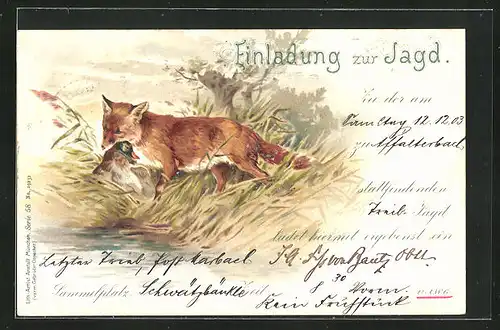 Einladung zur Jagd.
Zu der am
Samstag 12.12.03
zu Affalterbach
stattfindenden
Treib- Jagd
ladet hiermit ergebenst ein
Letzter Trieb, Forst Harbach.
Sammelplatz Schwätzbänkle Zeit 8 30 Vorm.
Kein Frühstück
Lith.-Artist. Anstalt München
Serie 58